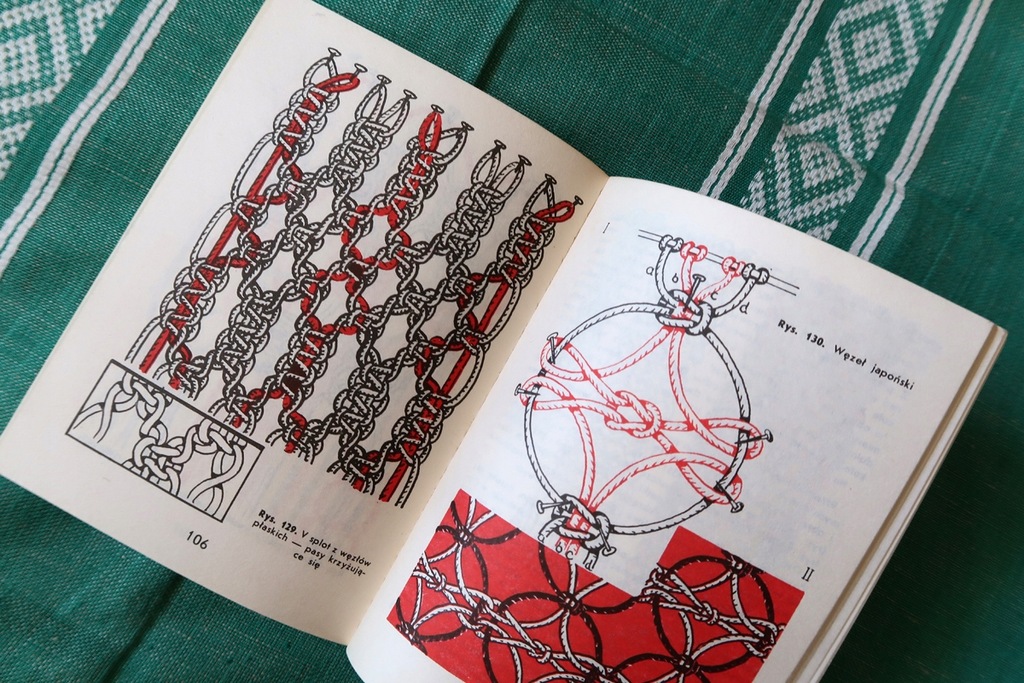 106
Rys. 129. V splot z węzłów
płaskich — pasy krzyżują-
ce się
I
a
b
c
d
Rys. 130. Węzeł japoński
II